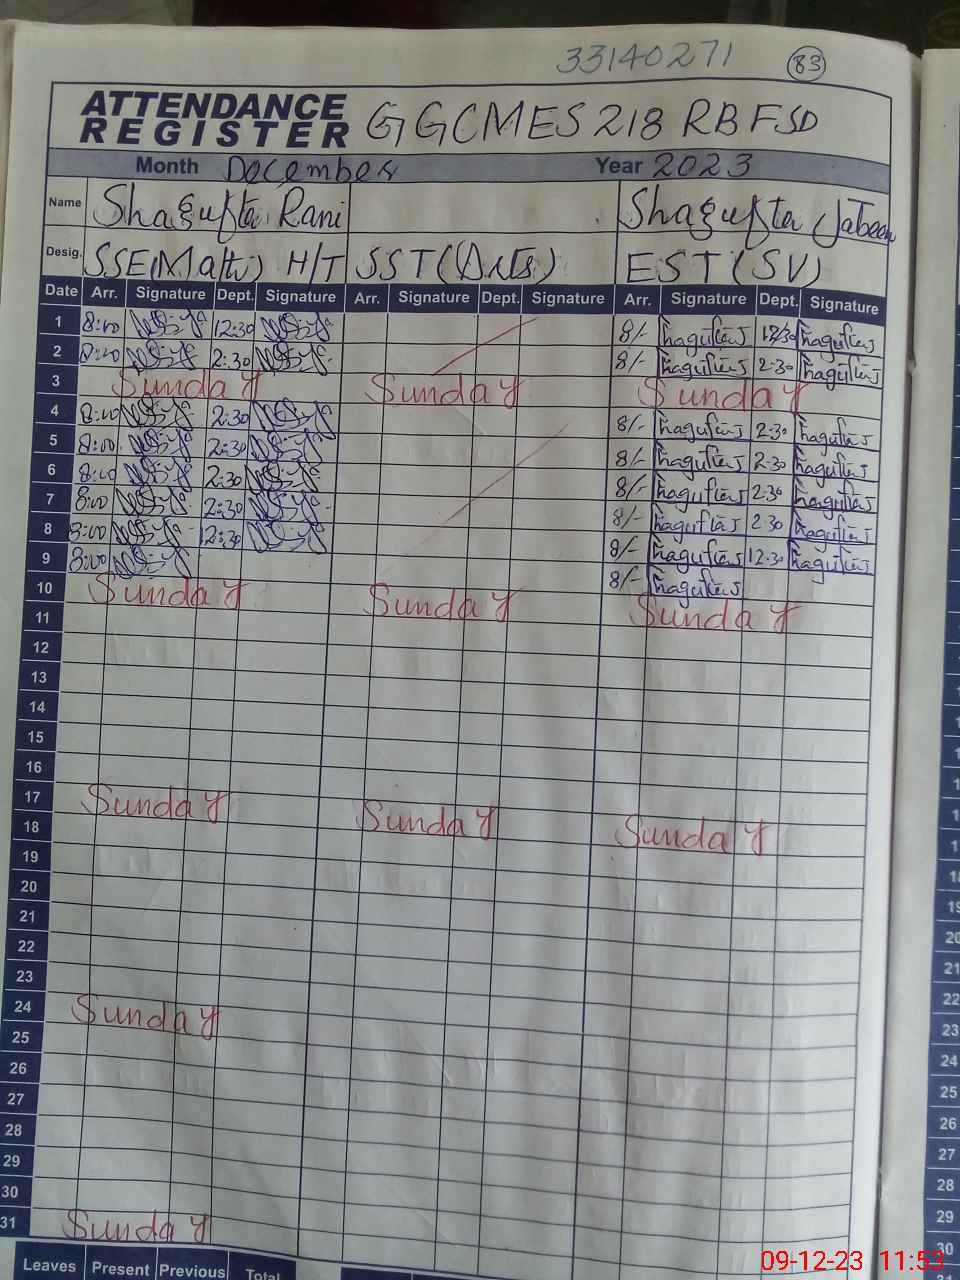 33140271 83
ATTENDANCE REGISTER GGCMES 218 RB FSD
Month December Year 2023
Name Shagufta Rani Shagufta Jabeen
Desig. SSE(Math) H/T SST(Arts) EST(SV)
Date Arr. Signature Dept. Signature Arr. Signature Dept. Signature Arr. Signature Dept. Signature
1 8:00 12:30 8/- 12/30
2 8:00 2:30 8/- 2:30
3 Sunday Sunday Sunday
4 8:00 2:30 8/- 2:30
5 8:00 2:30 8/- 2.30
6 8:00 2:30 8/- 2:30
7 8:00 2:30 8/- 2:30
8 8:00 12:30 8/- 12:30
9 8:00 8/-
10 Sunday Sunday Sunday
11
12
13
14
15
16
17 Sunday Sunday Sunday
18
19
20
21
22
23
24 Sunday
25
26
27
28
29
30
31 Sunday
Leaves Present Previous Total
09-12-23 11:53